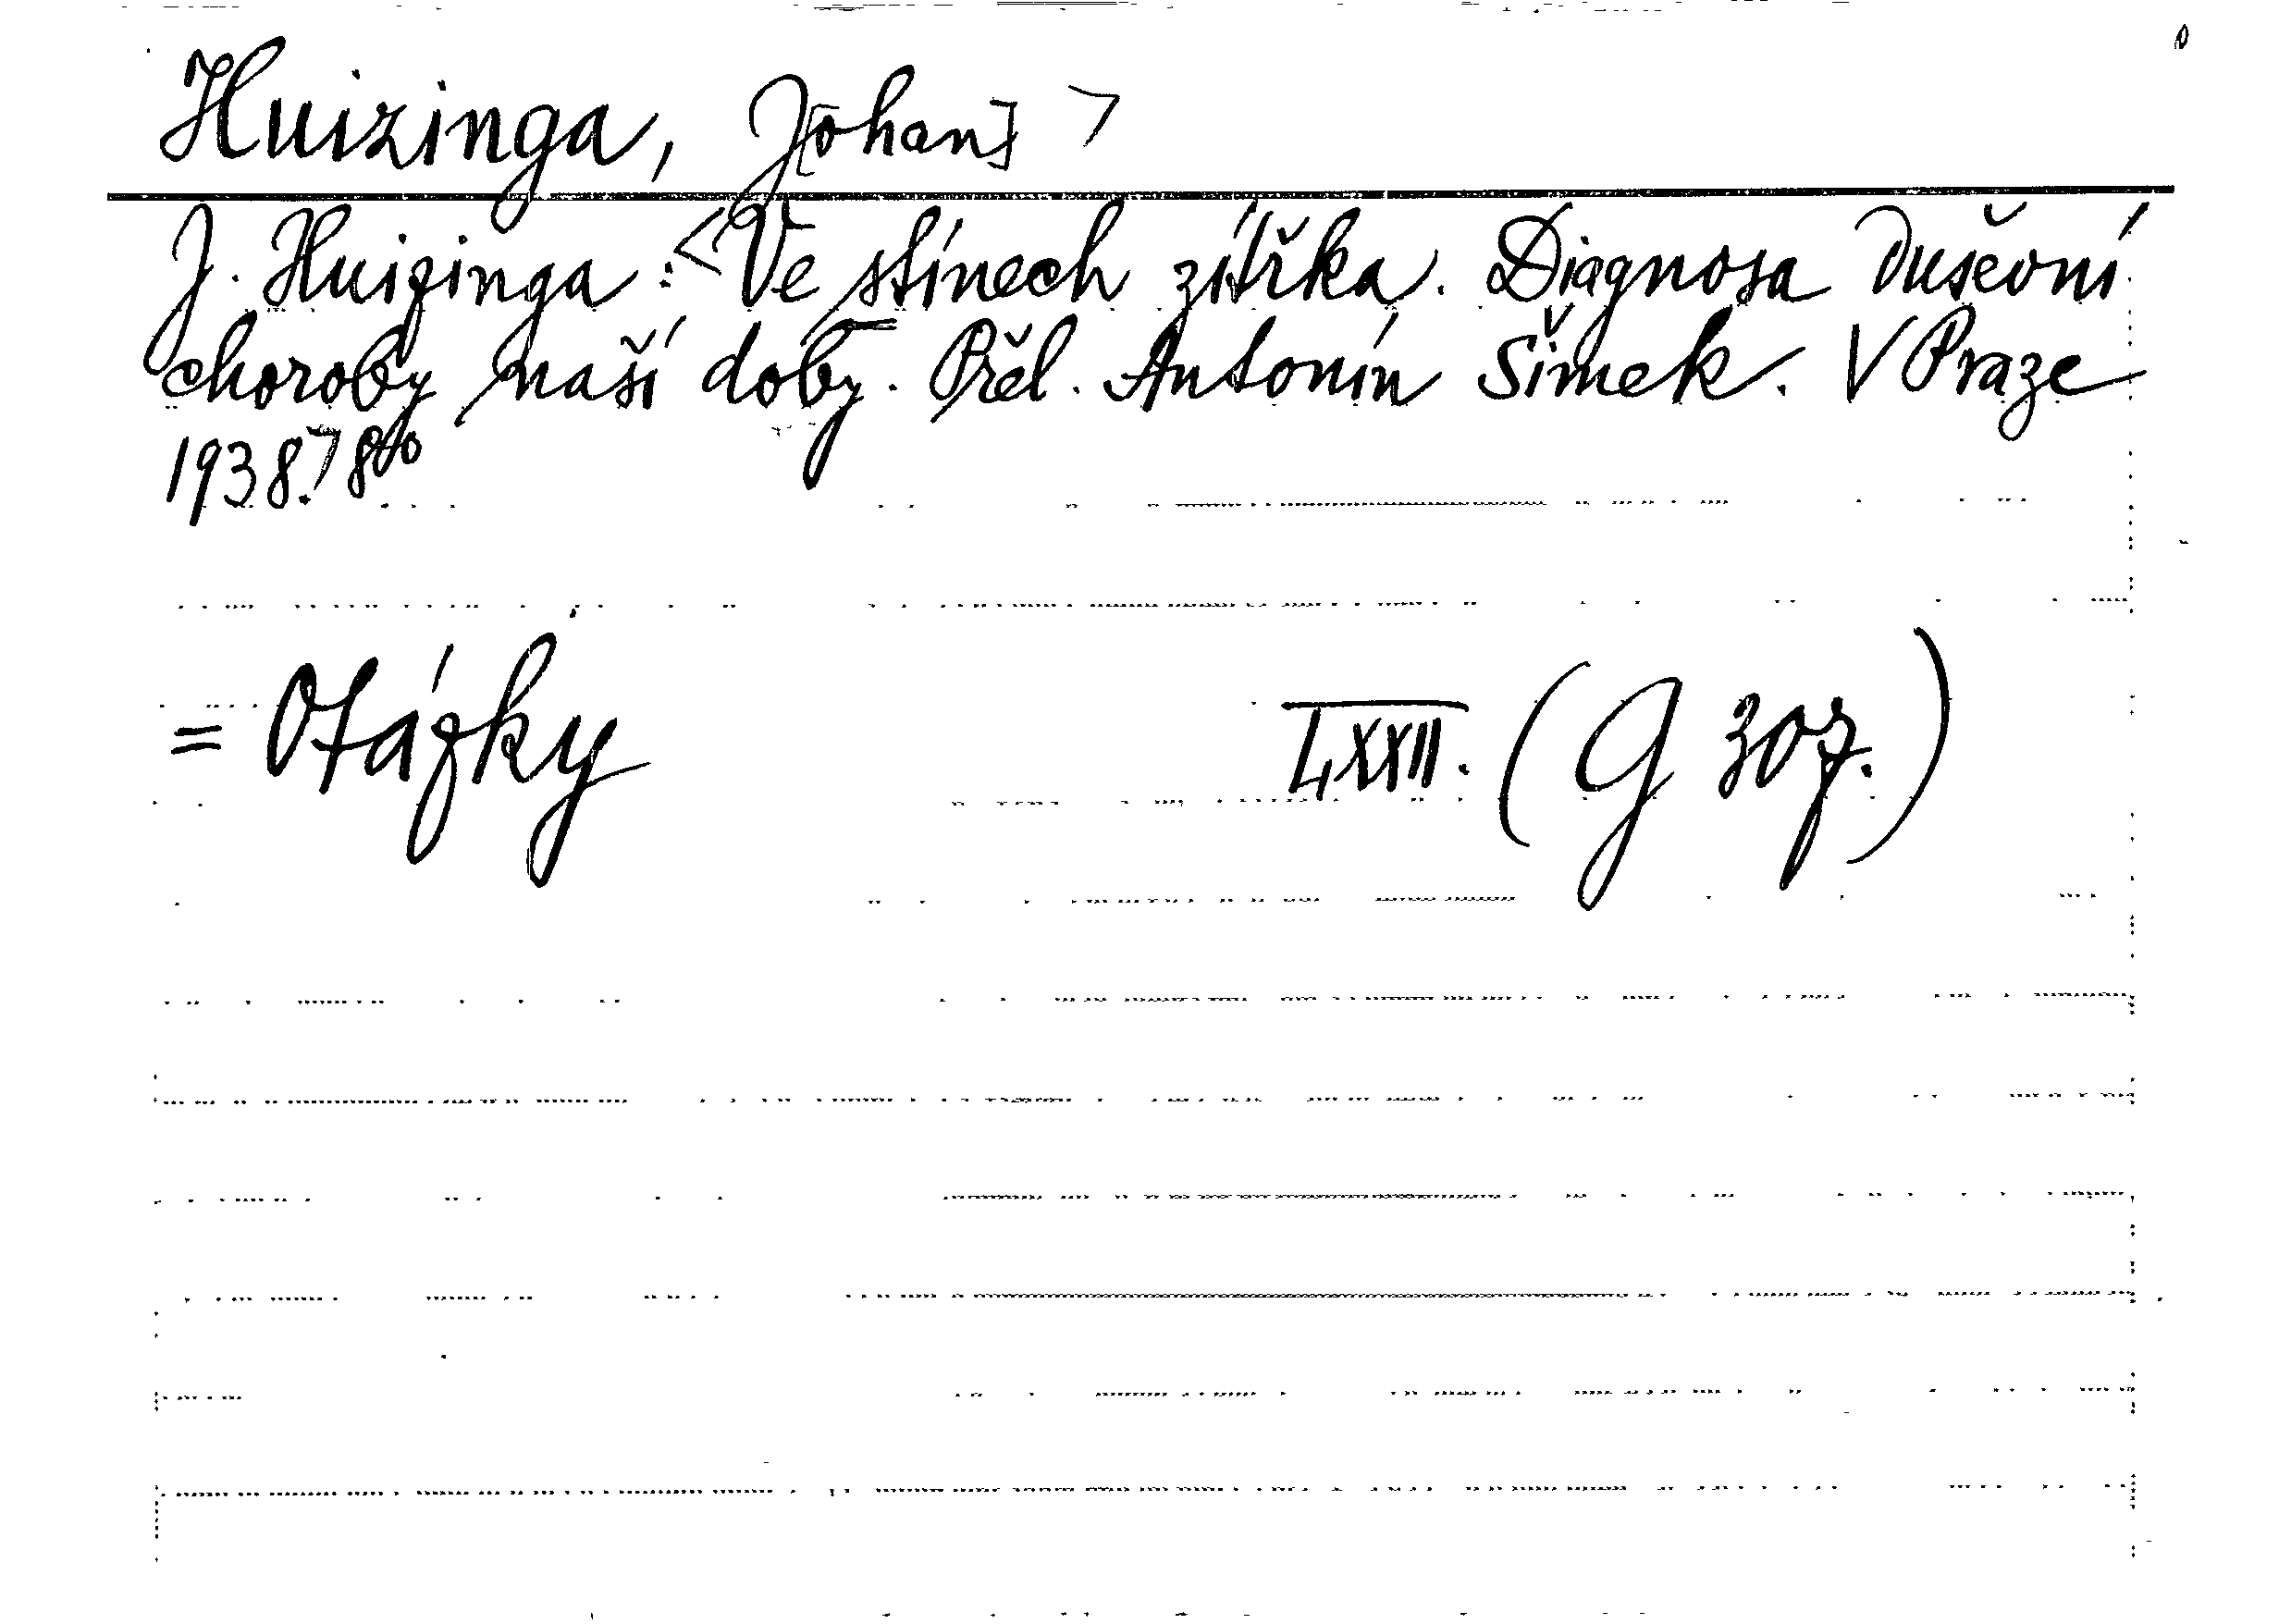 Huizinga, J[ohan] >
J. Huizinga: <Ve stínech zítřka. Diagnosa duševní
choroby naší doby. Přel. Antonín Šimek. V Praze
1938.> 8º
= Otázky LXXII. (G 307.)